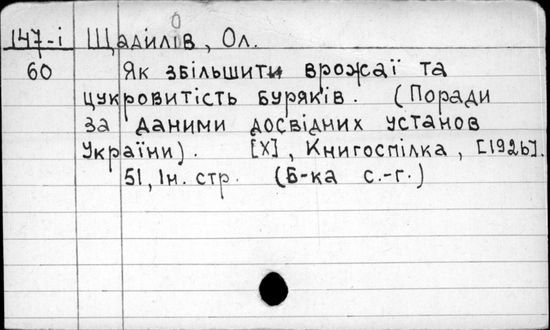 147-і Щадилів, Ол.
60 Як збільшити врожаї та
цукровитість буряків. (Поради
за даними досвідних установ
України). [Х], Книгоспілка, [1926].
51, Ін. стр. (Б-ка с.-г.)